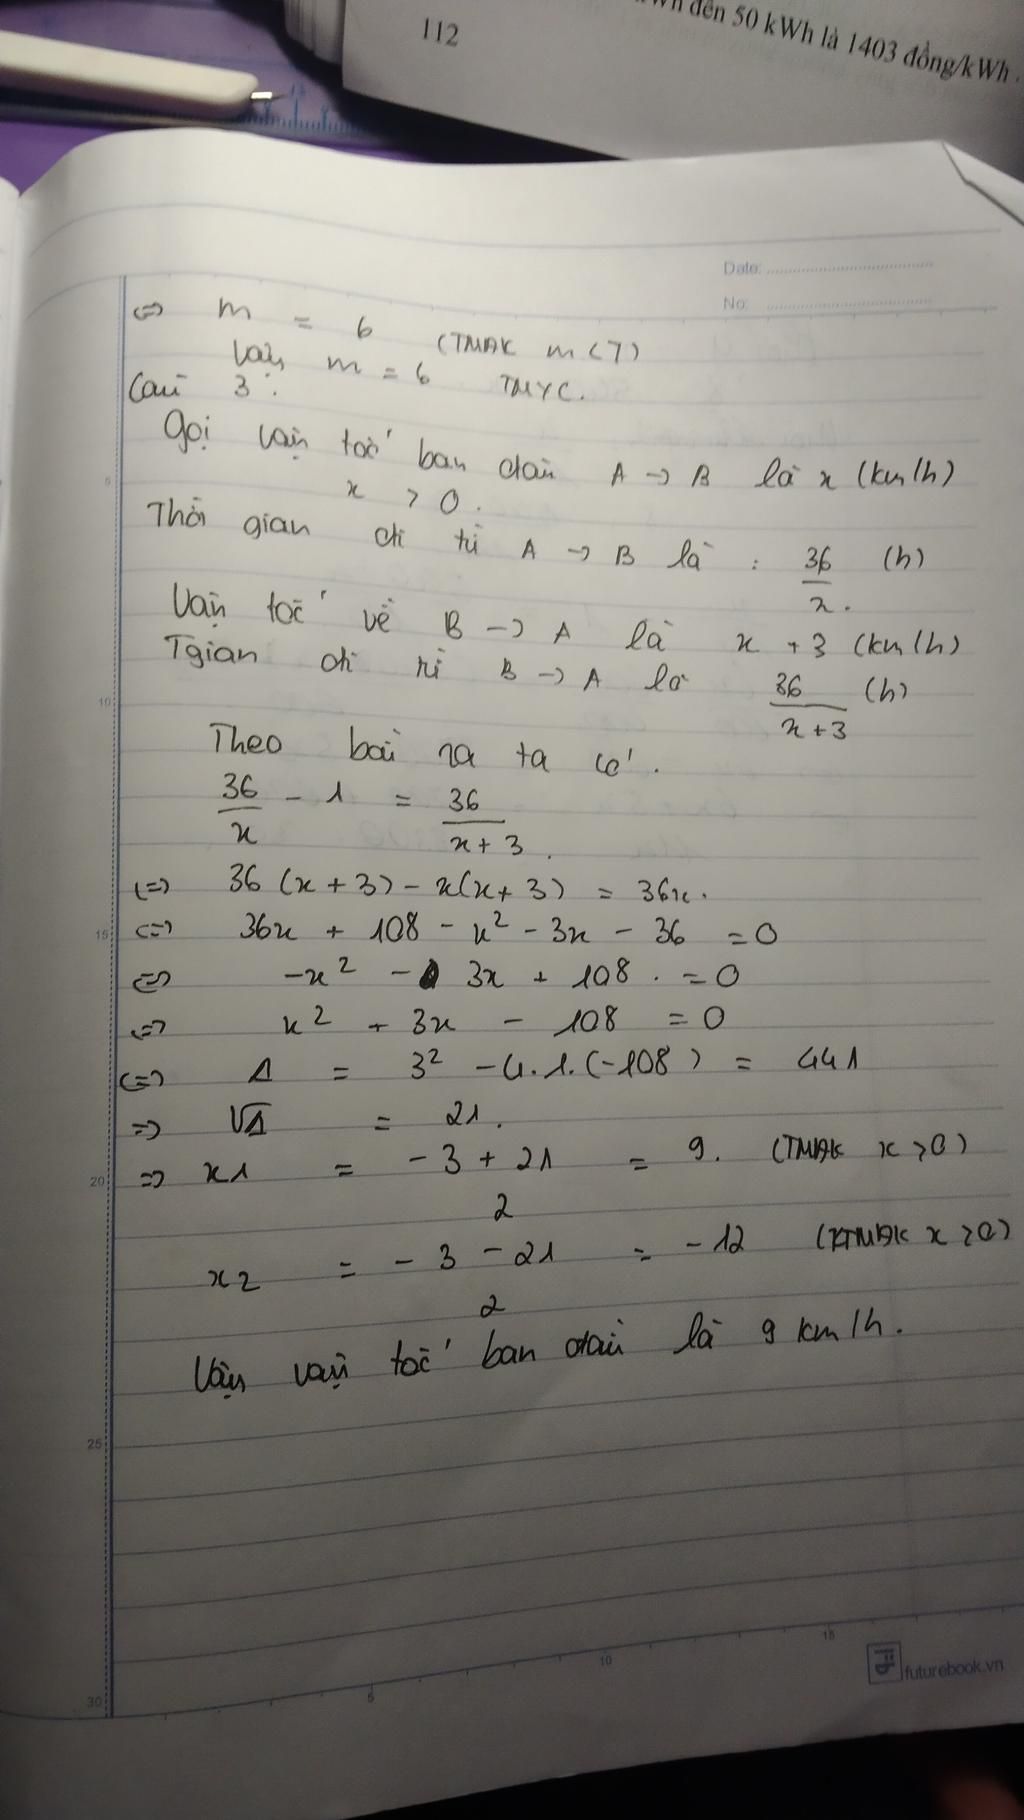 kWh đến 50 kWh là 1403 đồng/kWh.
112
Date:
No:
<=> m = 6 (TMĐK m<7)
Vậy m = 6 TMYC.
Câu 3:
Gọi vận tốc ban đầu A -> B là x (km/h)
x > 0.
Thời gian đi từ A -> B là : 36/x. (h)
Vận tốc về B -> A là x + 3 (km/h)
Tgian đi từ B -> A là 36/(x+3) (h)
Theo bài ra ta có.
36/x - 1 = 36/(x+3).
<=> 36 (x + 3) - x(x+3) = 36x.
<=> 36x + 108 - x² - 3x - 36 = 0
<=> -x² - 3x + 108. = 0
<=> x² + 3x - 108 = 0
<=> Δ = 3² - 4.1.(-108) = 441
=> √Δ = 21.
=> x1 = (-3 + 21)/2 = 9. (TMĐK x>0)
x2 = (-3 - 21)/2 = -12 (KTMĐK x>0)
Vậy vận tốc ban đầu là 9 km/h.
5
10
15
20
25
30
5
10
15
futurebook.vn